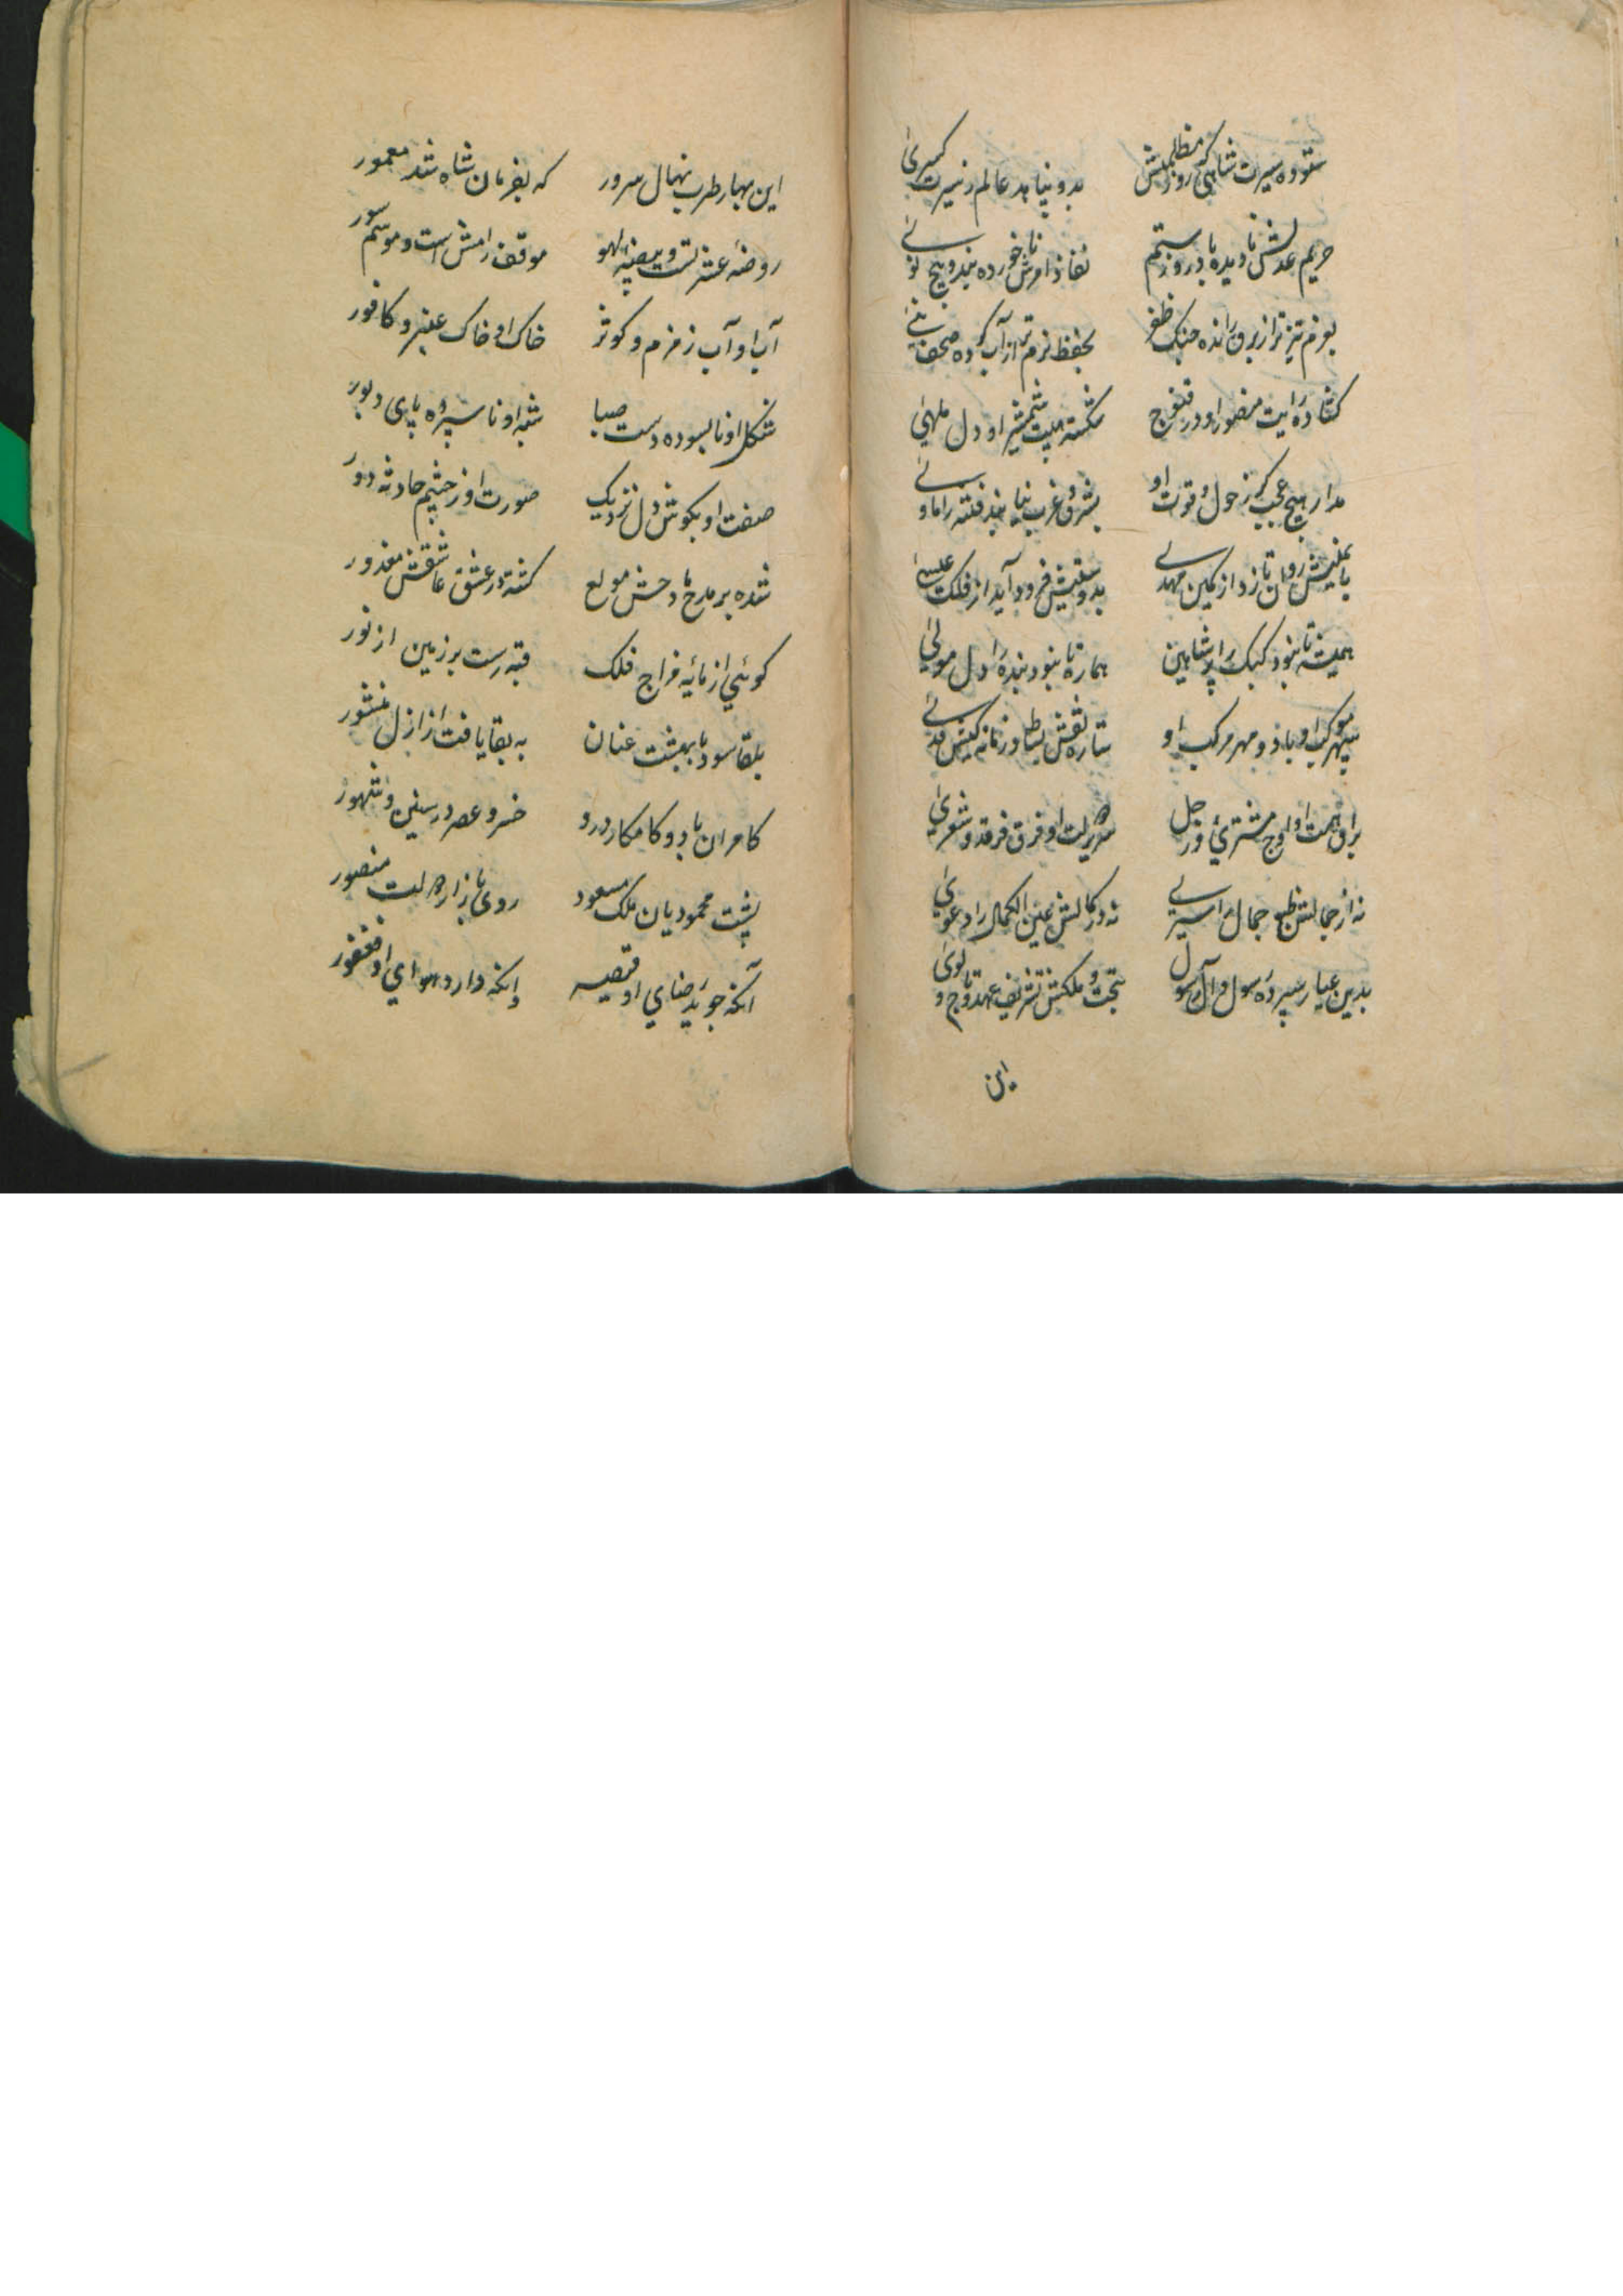 ستوده سیرت شاهی که روز مظلمتش بدو پناهد عالم ز سیرت کسری
حریم عدلش نادیده بادروز ستم نفاذ امرش ناخورده بند و هیچ
بعزم تیزتر از برق رانده خنک ظفر بحفظ نرم تر از آب کرده
کشاده رایت منصور او در فتوح شکسته هیبت شمشیر او دل
مدار هیچ عجب کر ز حول و قوت او بشرق و غرب نیابند فتنه را ماوی
روان تازد از کمین مهدی فرود آید از فلک عیسی
همیشه تا نبود کبک را پر شاهین هماره تا نبود بنده را دل مولی
سپهر موکب او باد و مهر مرکب او ستاره نقش بساط و زمانه
براق همت او اوج مشتری و زحل سریر او فرق فرقد و شعری
نه از جمالش طبع جمال را سیری نه در کمالش عین الکمال را دعوی
بدین عیار سپرده رسول و آل رسول بتخت و ملکش تشریف عهد و تاج و لوی
این
این بهار طرب نهال سرور که بفرمان شاه شد معمور
روضه عشرتست و بیضه لهو موقف رامش است و موسم سور
آب او آب زمزم و کوثر خاک او خاک عنبر و کافور
شکل او نابسوده دست صبا شبه او ناسپرده پای دبور
صفت او بکوش دل نزدیک صورت او ز چشم حادثه دور
شده بر مدح مادحش مولع کشته در عشق عاشقش معذور
کوئی از مایه فراج فلک قبه رست بر زمین از نور
بلقا سود با بهشت عنان به بقا یافت از ازل منشور
کامران باد و کامکار درو خسرو عصر در سنین و شهور
پشت محمودیان ملک مسعود روی بازار منصور
آنکه جوید رضای او قیصر وانکه دارد هوای او فغفور